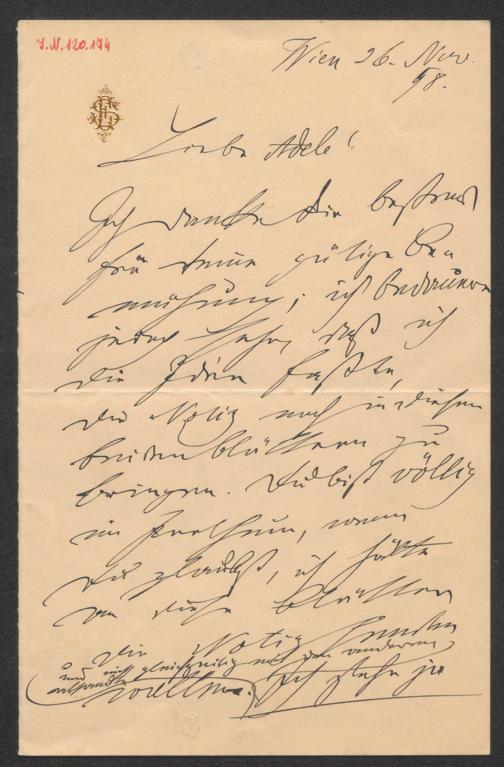 I.N. 120.174
Wien 26. Nov.
98.
Liebe Adele!
Ich danke Dir bestens
für Deine gütige Be-
mühung; ich bedauere
jedoch sehr, daß ich
die Idee faßte,
die Notiz noch in diesen
beiden Blättern zu
bringen. Du bist völlig
im Irrthum, wenn
Du glaubst, ich hätte
an diese Blätter
die Notiz senden
und nicht gleichzeitig mit den anderen,
wollen. Ich stehe ja